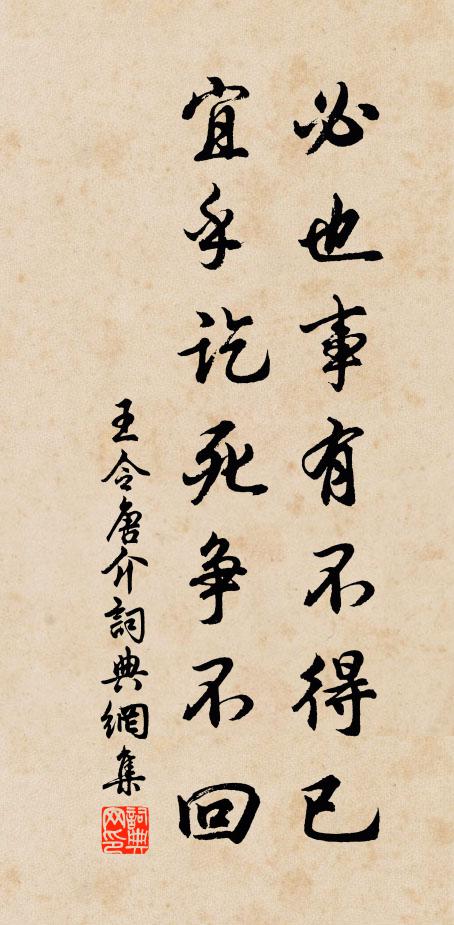 必也事有不得已
宜乎訖死争不回
王令唐介詞典網集
詞典网印